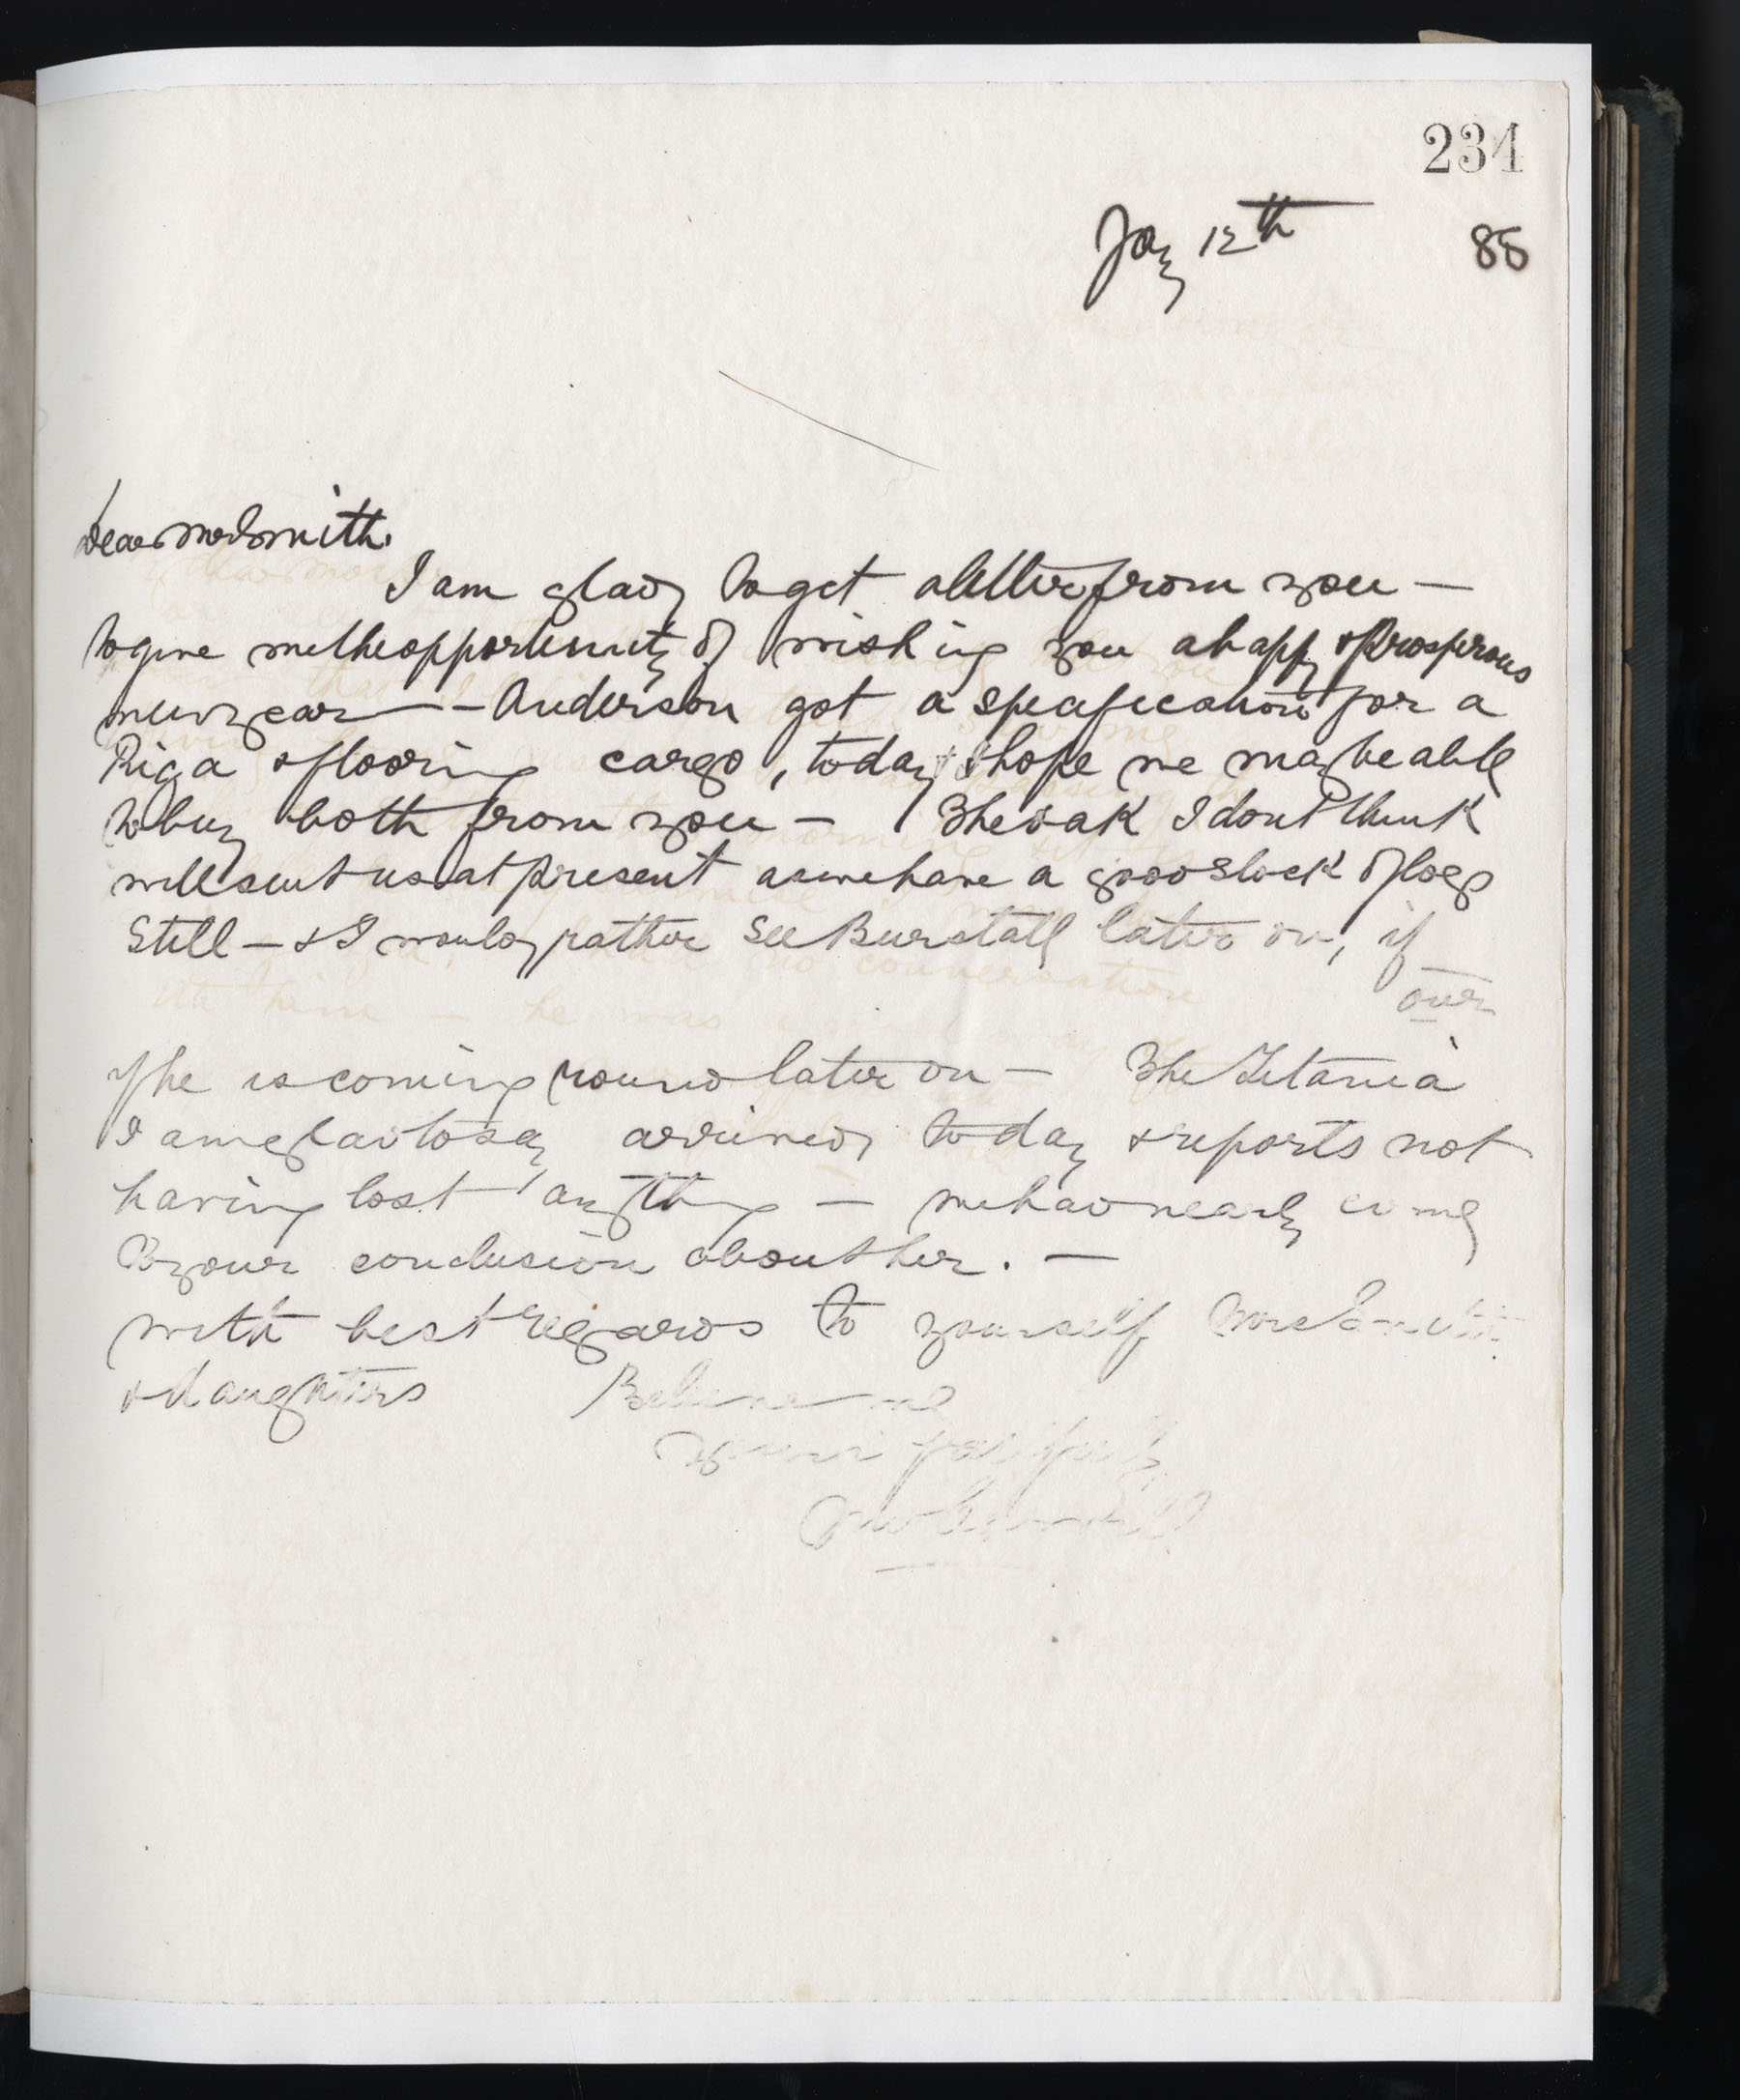 234
Jany 12th 88
Dear Mr Smith.
I am glad to get a letter from you —
to give me the opportunity of wishing you a happy & Prosperous
new year — Anderson got a specification for a
Riga & flooring cargo, today & I hope we may be able
to buy both from you — The oak I dont think
will suit us at present as we have a good stock of logs
Still — & I would rather see Burstall later on, if
over
if he is coming round later on — The Titania
I am glad to say arrived today & reports not
having lost anything — we had nearly come
to your conclusion about her. —
with best regards to yourself Mrs Smith
& daughters Believe me
yours faithfully